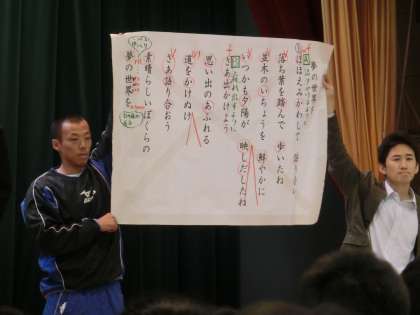 夢の世界を
①ほほえみかわして 語り合い
落ち葉を踏んで 歩いたね
並木のいちょうを 鮮やかに
いつかも夕陽が 映しだしたね
さあ出かけよう
思い出のあふれる
道をかけぬけ
さあ語り合おう
素晴らしいぼくらの
夢の世界を